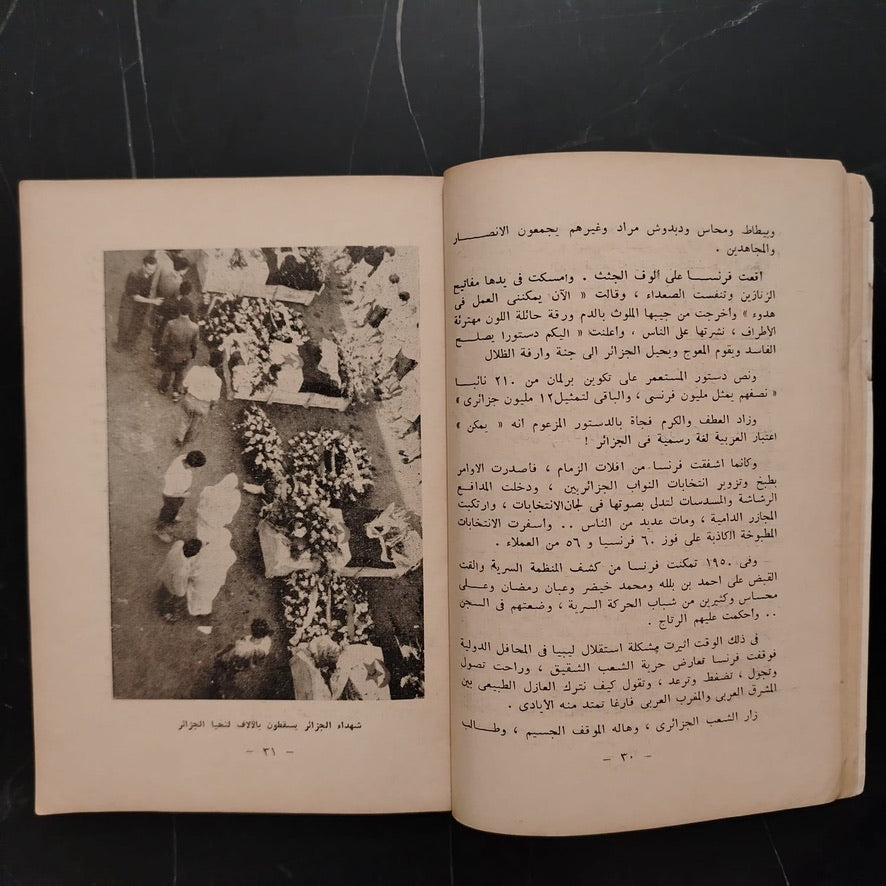 وبيطاط ومحاس وديدوش مراد وغيرهم يجمعون الانصار
والمجاهدين .
اقعت فرنسا على ألوف الجثث . وأمسكت فى يدها مفاتيح
الزنازين وتنفست الصعداء ، وقالت « الآن يمكننى العمل فى
هدوء » وأخرجت من جيبها الملوث بالدم ورقة حائلة اللون مهترئة
الأطراف ، نشرتها على الناس ، وأعلنت « اليكم دستورا يصلح
الفاسد ويقوم المعوج ويحيل الجزائر الى جنة وارفة الظلال
ونص دستور المستعمر على تكوين برلمان من ٢١٠ نائبا
« نصفهم يمثل مليون فرنسى ، والباقى لتمثيل١٢ مليون جزائرى »
وزاد العطف والكرم فجأة بالدستور المزعوم انه « يمكن »
اعتبار العربية لغة رسمية فى الجزائر !
وكانما اشفقت فرنسا من افلات الزمام ، فأصدرت الاوامر
بطبخ وتزوير انتخابات النواب الجزائريين ، ودخلت المدافع
الرشاشة والمسدسات لتدلى بصوتها فى لجان الانتخابات ، وارتكبت
المجازر الدامية ، ومات عديد من الناس .. وأسفرت الانتخابات
المطبوخة الكاذبة على فوز ٦٠ فرنسيا و ٥٦ من العملاء .
وفى ١٩٥٠ تمكنت فرنسا من كشف المنظمة السرية وألقت
القبض على احمد بن بلله ومحمد خيضر وعبان رمضان وعلى
محساس وكثيرين من شباب الحركة السرية ، وضعتهم فى السجن
.. وأحكمت عليهم الرتاج .
فى ذلك الوقت أثيرت مشكلة استقلال ليبيا فى المحافل الدولية
فوقفت فرنسا تعارض حرية الشعب الشقيق ، وراحت تصول
وتجول ، تضغط وترعد ، وتقول كيف نترك العازل الطبيعى بين
المشرق العربى والمغرب العربى فارغا تمتد منه الايادى .
زار الشعب الجزائرى ، وهاله الموقف الجسيم ، وطالب
— ٣٠ —
شهداء الجزائر يسقطون بالآلاف لتحيا الجزائر
— ٣١ —